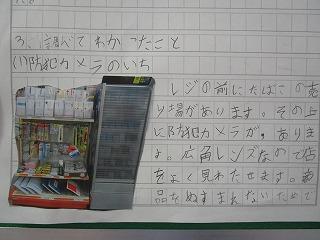 3、調べてわかったこと
(1)防犯カメラのいち
レジの前にたばこの売
り場があります。その上
に防犯カメラが、ありま
す。広角レンズなので店
をよく見わたせます。商
品をぬすまれないためで